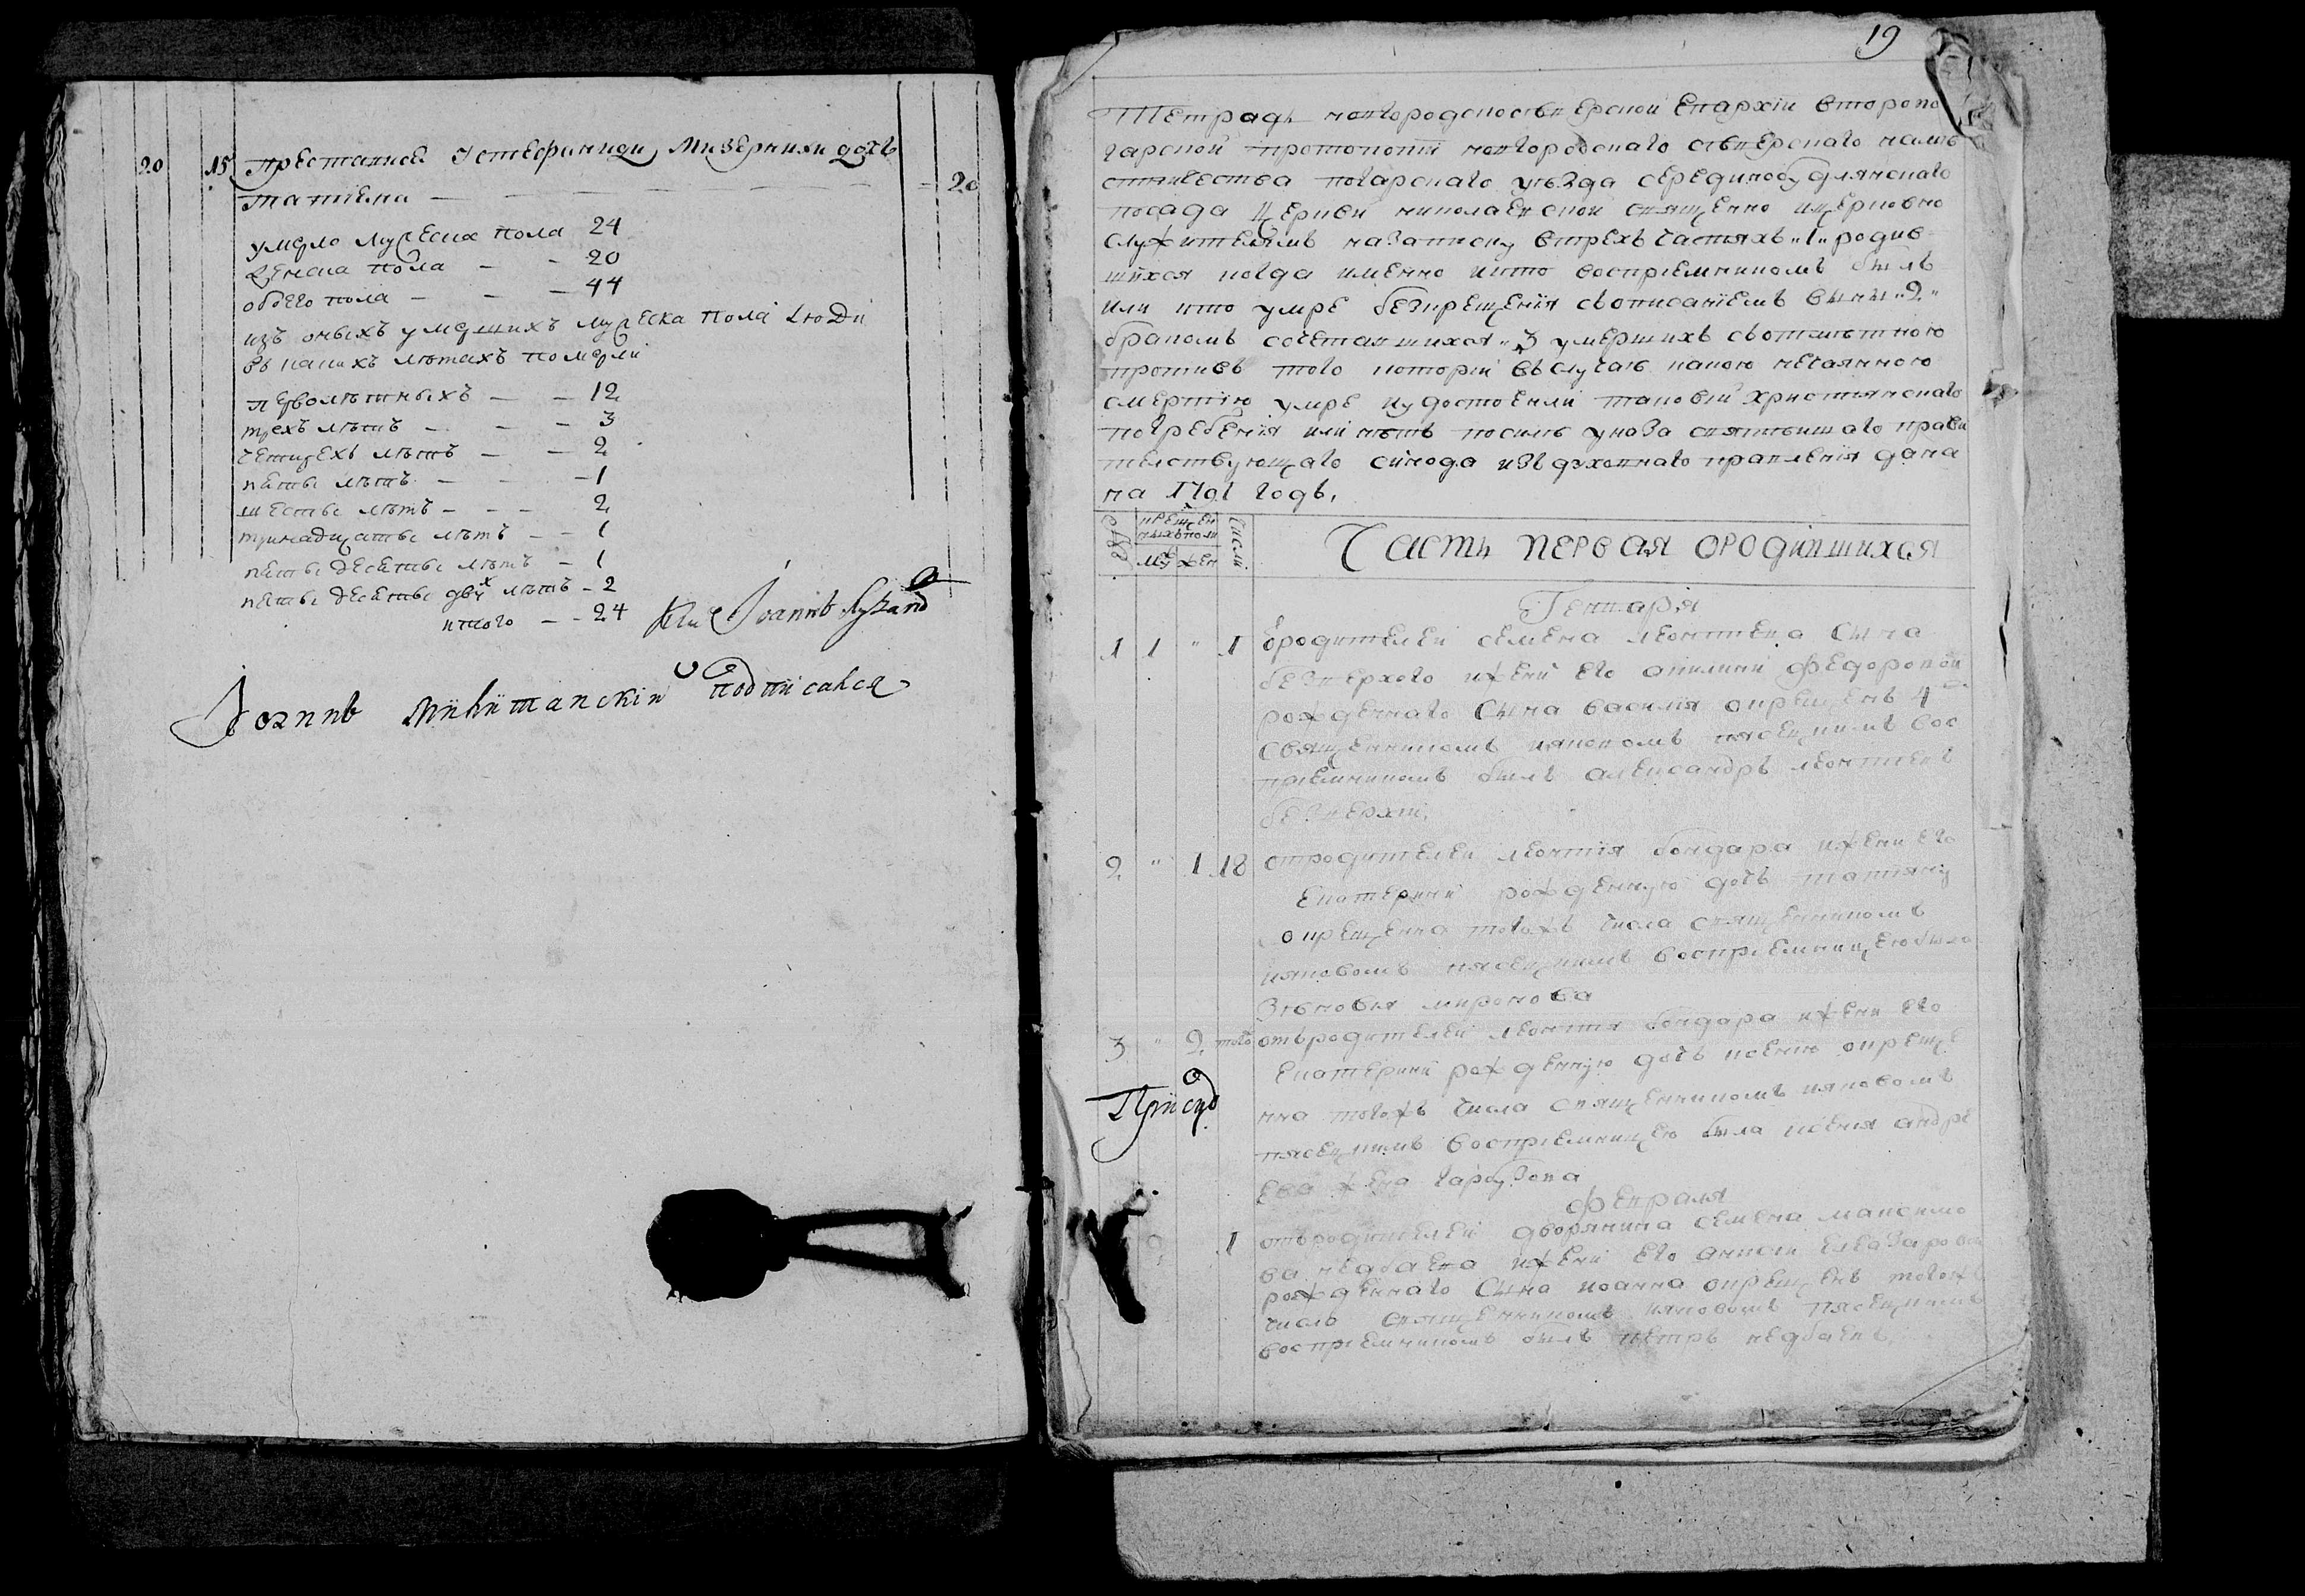 20 15 преставися Устефинищи Мизерники дочь
татиена — — — — — — 20
умерло мужеска пола 24
женска пола — - 20
обоего пола — — — 44
изъ оныхъ умершихъ мужеска пола люди
въ какихъ лѣтахъ померли
перволѣтныхъ — — 12
трехъ лѣтъ — — — 3
четирехъ лѣтъ — — 2
пѣть лѣтъ — — — 1
шесть лѣтъ — — — 2
тринадцать лѣтъ — — 1
петьдесеть лѣтъ — 1
петьдесеть двух лѣтъ — 2
итого — — 24
Іоаннъ
Іоаннъ Никитанскій подписался
19
Тетрадь новгородсковѣверской Епархіи второпо
гарской протопопіи новгородскаго сѣверскаго намѣ
стничества погарскаго уѣзда серединобудлянскаго
посада Церкви николаевской священно ицерковно
служителямъ назаписку втрехъ частяхъ „1„ родив
шихся когда именно икто воспріемникомъ былъ
или кто умре безкрещенія сьописаніемъ вины „2„
бракомъ сочетавшихся „3 умершихъ сьотмѣткою
противъ того которій вьслучаю какою нечаянною
смертію умре иудостоенли таковій христіянскаго
погребенія или нѣтъ посилѣ указа святѣйшаго прави
телствующаго синода изъ духовнаго правленія дана
на 1791 годъ,
крещен
ныхъ поли
муж жен
Числи
Часть первая ородившихся
Генваря
1 1 „ 1 ѿродителей семена леонтіева сына
безверхого ижени его акилини федоровой
рожденнаго сына василія окрещенъ 4
священникомъ іяковомъ пясецкимъ вос
пріемникомъ былъ александръ леонтіевъ
безверхій,
2 „ 1 18 отродителей леонтія бондара ижени его
екатерини рожденную дочь татяну
окрещенна тогожъ числа священникомъ
іяковомъ пясецкимъ воспріемницею была
Зѣновія миронова
3 „ 2 того отьродителей леонтія бондара ижени его
екатерини рожденную дочь ксенію окреще
нна тогожъ числа священникомъ іяковомъ
пясецкимъ воспріемницею была ксенія андре
ева жена гарбузова
Февраля
1 отьродителей дворянина семена максимо
ва недбаева ижени его анноси елеазарови
рожденнаго сына иоанна окрещенъ тогожъ
число священникомъ іяковомъ пясецкимъ
воспріемникомъ былъ петръ недбаевъ